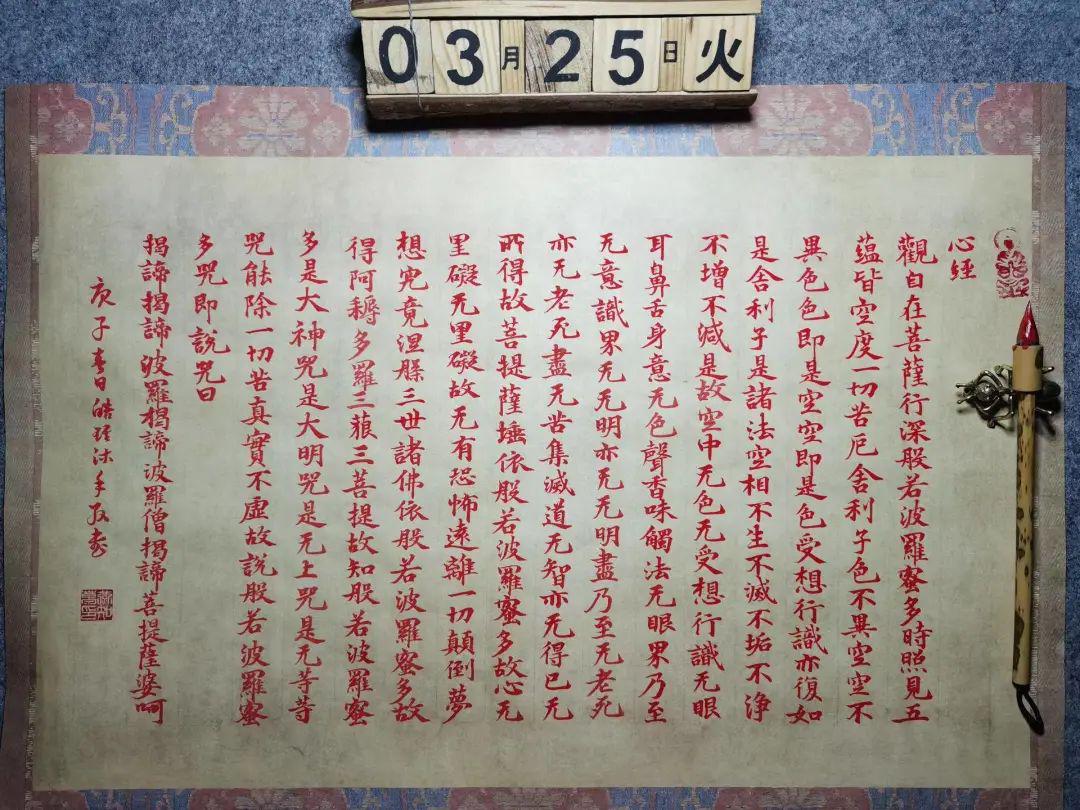 03月25日火
心經
觀自在菩薩行深般若波羅蜜多時照見五
蘊皆空度一切苦厄舍利子色不異空空不
異色色即是空空即是色受想行識亦復如
是舍利子是諸法空相不生不滅不垢不净
不增不減是故空中无色无受想行識无眼
耳鼻舌身意无色聲香味觸法无眼界乃至
无意識界无无明亦无无明盡乃至无老死
亦无老死盡无苦集滅道无智亦无得已无
所得故菩提薩埵依般若波羅蜜多故心无
里礙无里礙故无有恐怖遠離一切顛倒夢
想究竟涅槃三世諸佛依般若波羅蜜多故
得阿耨多羅三藐三菩提故知般若波羅蜜
多是大神咒是大明咒是无上咒是无等等
咒能除一切苦真實不虛故說般若波羅蜜
多咒即說咒曰
揭諦揭諦波羅揭諦波羅僧揭諦菩提薩婆呵
庚子春日皓沐手敬書